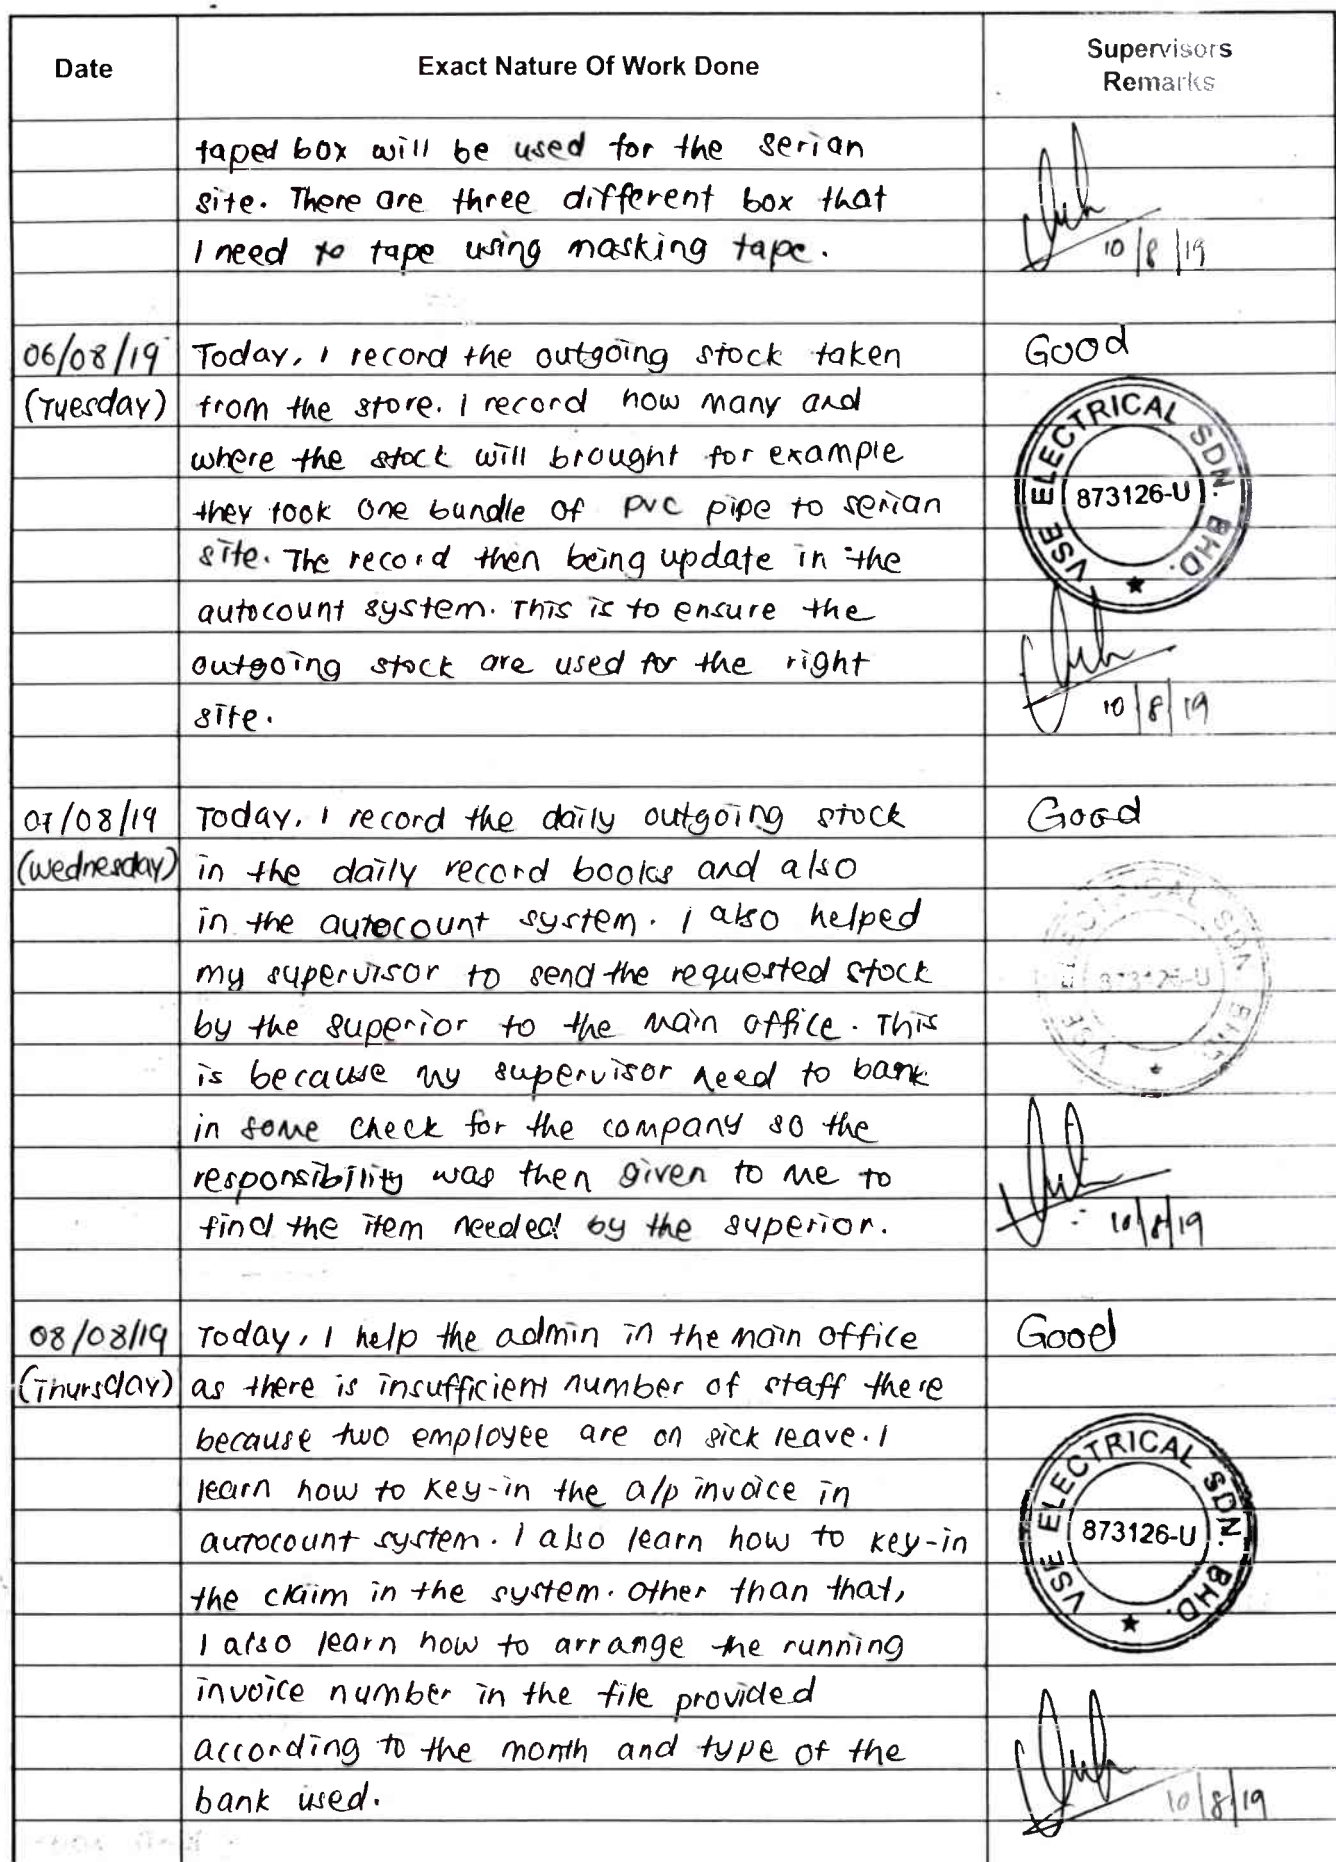 Date Exact Nature Of Work Done Supervisors Remarks
taped box will be used for the serian
site. There are three different box that
I need to tape using masking tape.
10/8/19
06/08/19 Today, I record the outgoing stock taken Good
(Tuesday) from the store. I record how many and
where the stock will brought for example
they took one bundle of pvc pipe to serian
site. The record then being update in the
autocount system. This is to ensure the
outgoing stock are used for the right
site.
VSE ELECTRICAL SDN. BHD.
873126-U
10/8/19
07/08/19 Today, I record the daily outgoing stock Good
(Wednesday) in the daily record books and also
in the autocount system. I also helped
my supervisor to send the requested stock
by the superior to the main office. This
is because my supervisor need to bank
in some check for the company so the
responsibility was then given to me to
find the item needed by the superior.
VSE ELECTRICAL SDN BHD
873126-U
10/8/19
08/08/19 Today, I help the admin in the main office Good
(Thursday) as there is insufficient number of staff there
because two employee are on sick leave. I
learn how to key-in the a/p invoice in
autocount system. I also learn how to key-in
the claim in the system. Other than that,
I also learn how to arrange the running
invoice number in the file provided
according to the month and type of the
bank used.
VSE ELECTRICAL SDN. BHD.
873126-U
10/8/19